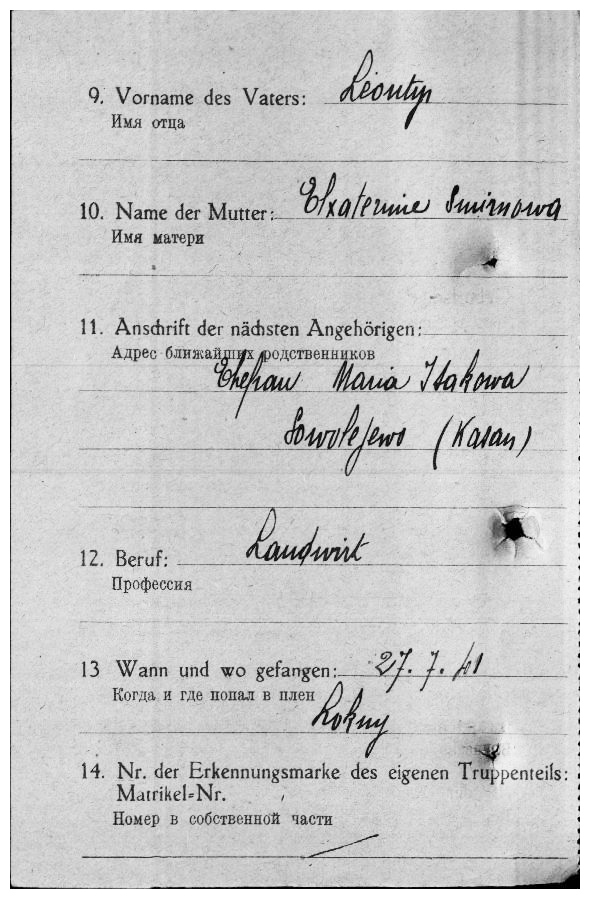 9. Vorname des Vaters: Léontyn
Имя отца
10. Name der Mutter: Ekaterinie Smirnowa
Имя матери
11. Anschrift der nächsten Angehörigen:
Адрес ближайших родственников
Ehefrau Maria Isakowa
Sowolejewo (Kasan)
12. Beruf: Landwirt
Профессия
13 Wann und wo gefangen: 27. 7. 41
Когда и где попал в плен
Lokny
14. Nr. der Erkennungsmarke des eigenen Truppenteils:
Matrikel-Nr.
Номер в собственной части